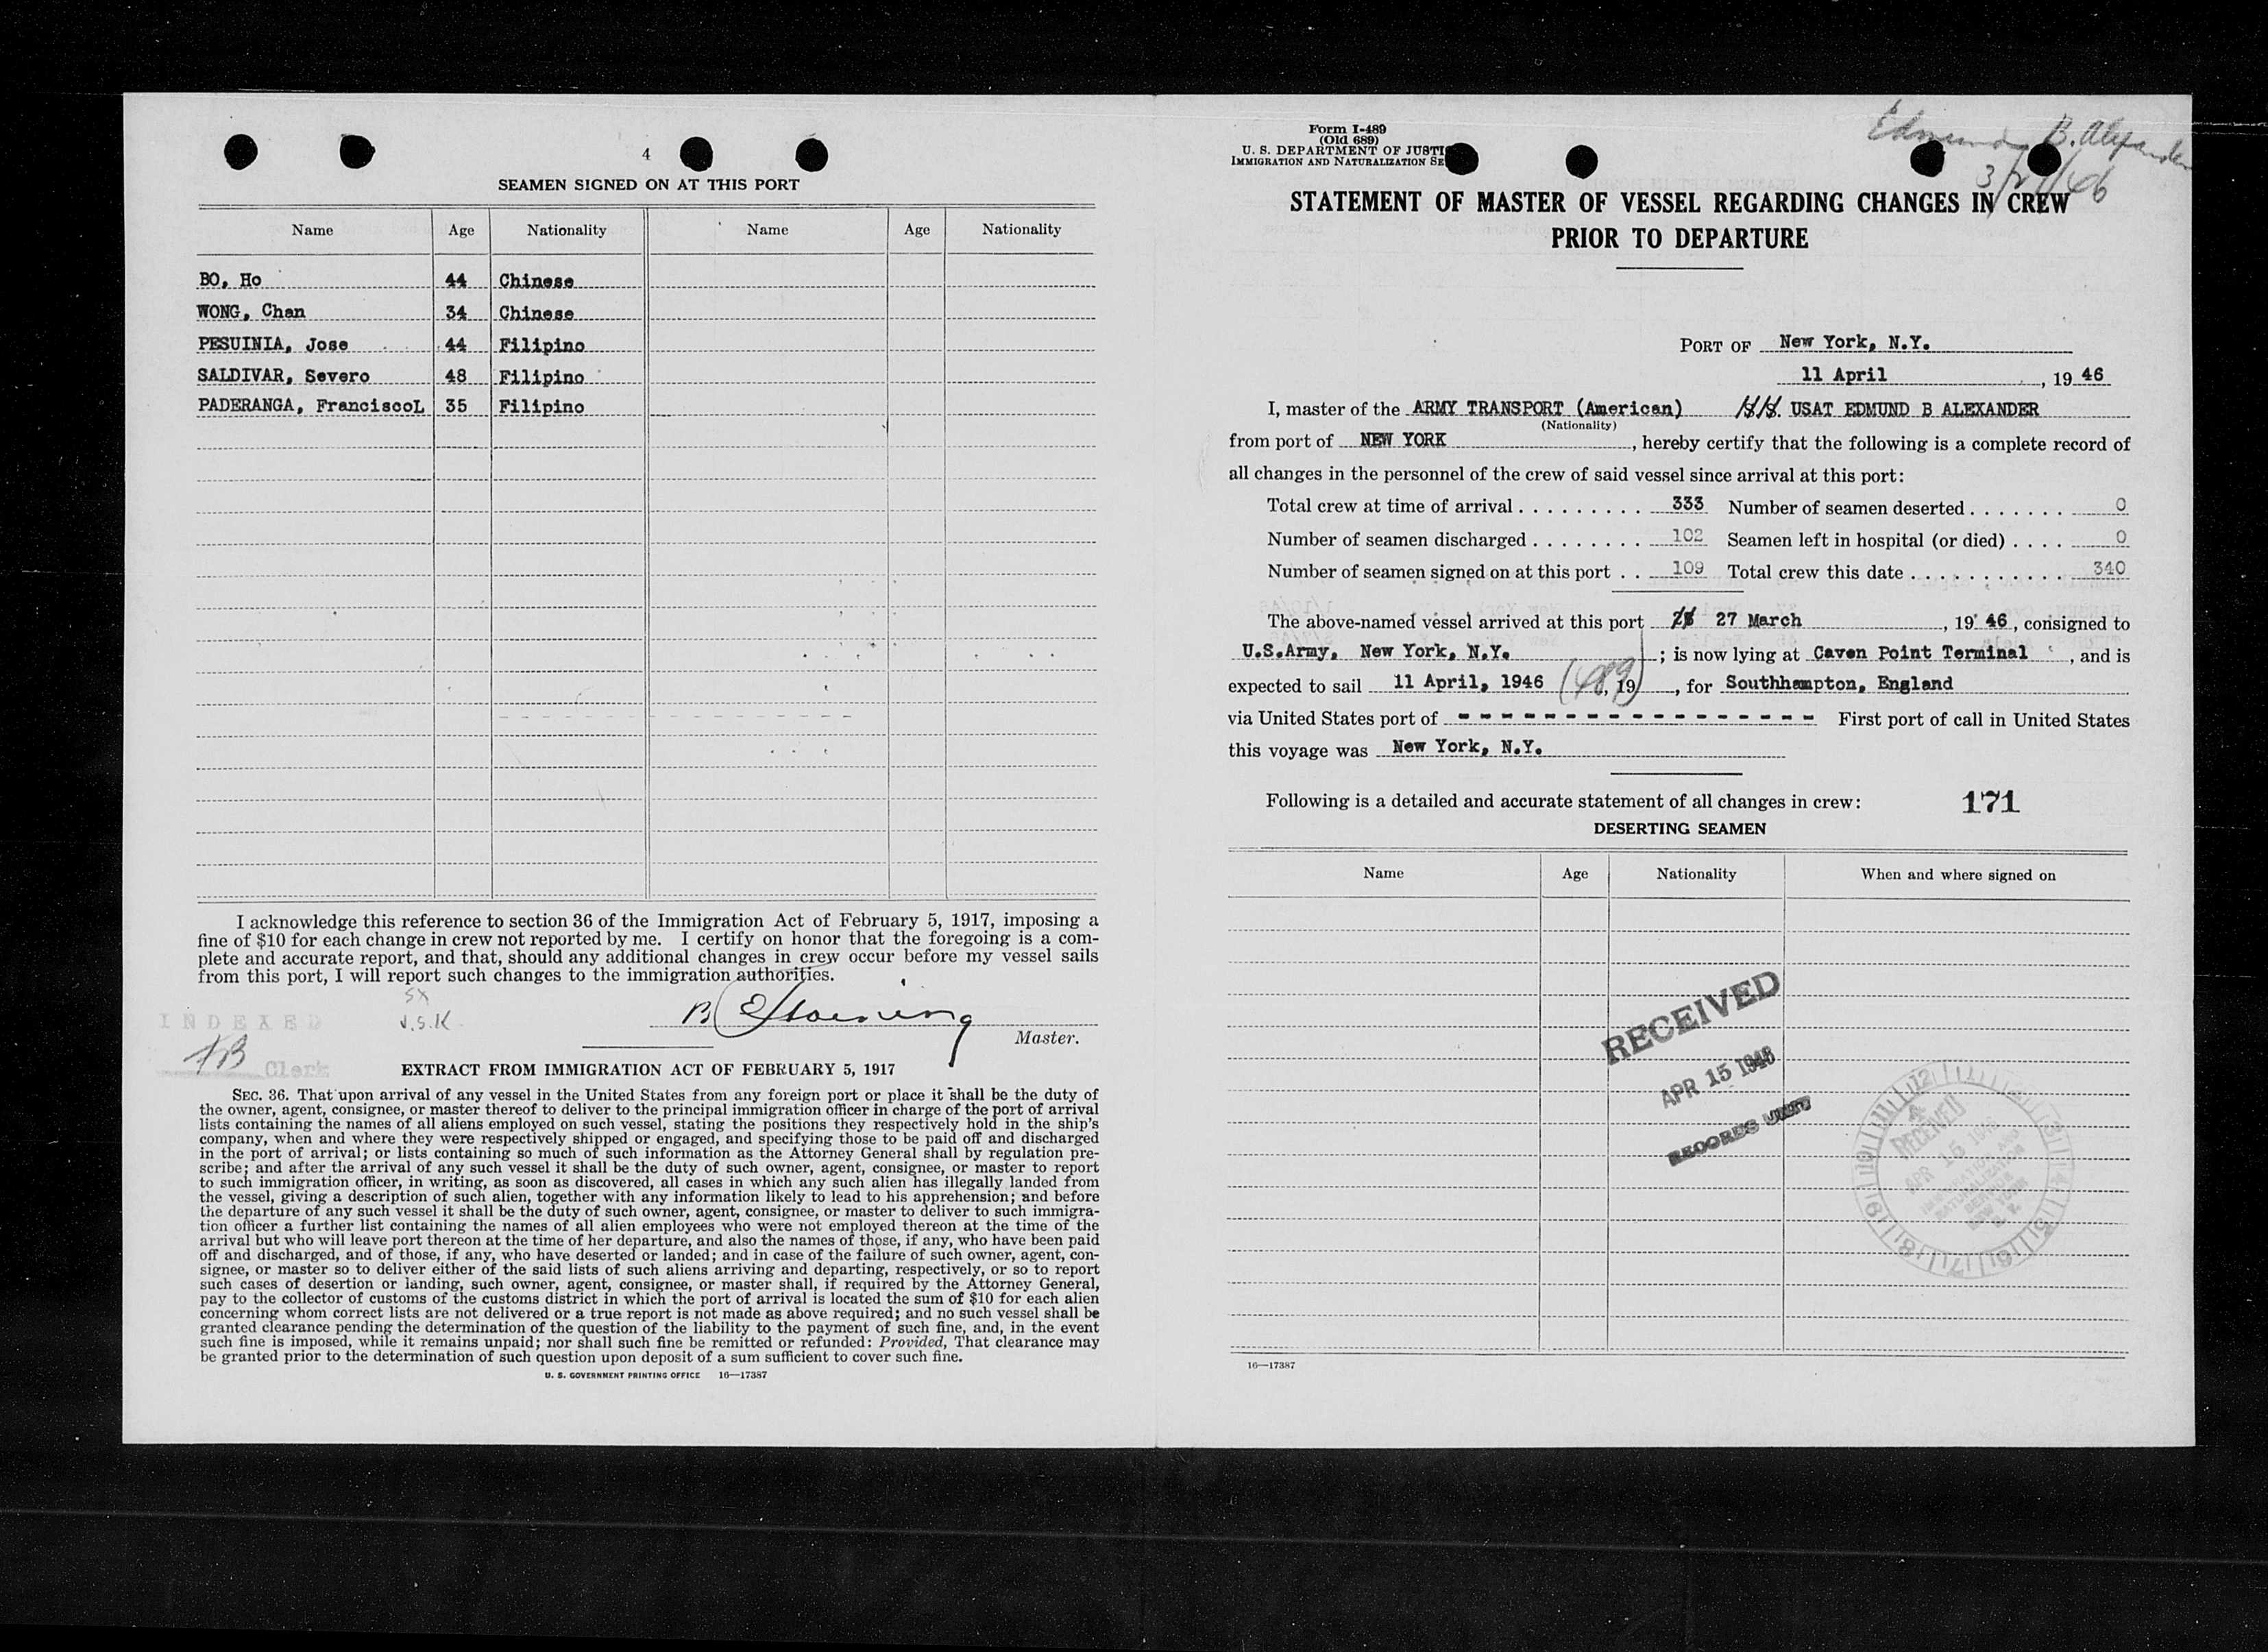 4
SEAMEN SIGNED ON AT THIS PORT
Name Age Nationality Name Age Nationality
BO, Ho 44 Chinese
WONG, Chan 34 Chinese
PESUINIA, Jose 44 Filipino
SALDIVAR, Severo 48 Filipino
PADERANGA, FranciscoL 35 Filipino
I acknowledge this reference to section 36 of the Immigration Act of February 5, 1917, imposing a
fine of $10 for each change in crew not reported by me. I certify on honor that the foregoing is a com-
plete and accurate report, and that, should any additional changes in crew occur before my vessel sails
from this port, I will report such changes to the immigration authorities.
SX
J.S.K
INDEXED
Clerk
Master.
EXTRACT FROM IMMIGRATION ACT OF FEBRUARY 5, 1917
SEC. 36. That upon arrival of any vessel in the United States from any foreign port or place it shall be the duty of
the owner, agent, consignee, or master thereof to deliver to the principal immigration officer in charge of the port of arrival
lists containing the names of all aliens employed on such vessel, stating the positions they respectively hold in the ship's
company, when and where they were respectively shipped or engaged, and specifying those to be paid off and discharged
in the port of arrival; or lists containing so much of such information as the Attorney General shall by regulation pre-
scribe; and after the arrival of any such vessel it shall be the duty of such owner, agent, consignee, or master to report
to such immigration officer, in writing, as soon as discovered, all cases in which any such alien has illegally landed from
the vessel, giving a description of such alien, together with any information likely to lead to his apprehension; and before
the departure of any such vessel it shall be the duty of such owner, agent, consignee, or master to deliver to such immigra-
tion officer a further list containing the names of all alien employees who were not employed thereon at the time of the
arrival but who will leave port thereon at the time of her departure, and also the names of those, if any, who have been paid
off and discharged, and of those, if any, who have deserted or landed; and in case of the failure of such owner, agent, con-
signee, or master so to deliver either of the said lists of such aliens arriving and departing, respectively, or so to report
such cases of desertion or landing, such owner, agent, consignee, or master shall, if required by the Attorney General,
pay to the collector of customs of the customs district in which the port of arrival is located the sum of $10 for each alien
concerning whom correct lists are not delivered or a true report is not made as above required; and no such vessel shall be
granted clearance pending the determination of the question of the liability to the payment of such fine, and, in the event
such fine is imposed, while it remains unpaid; nor shall such fine be remitted or refunded: Provided, That clearance may
be granted prior to the determination of such question upon deposit of a sum sufficient to cover such fine.
U. S. GOVERNMENT PRINTING OFFICE 16—17387
Form I-489
(Old 689)
U. S. DEPARTMENT OF JUSTI
IMMIGRATION AND NATURALIZATION SE
Edmund B. Alexander
STATEMENT OF MASTER OF VESSEL REGARDING CHANGES IN CREW
PRIOR TO DEPARTURE
PORT OF New York, N.Y.
11 April, 19 46
I, master of the ARMY TRANSPORT (American) USAT EDMUND B ALEXANDER
(Nationality)
from port of NEW YORK, hereby certify that the following is a complete record of
all changes in the personnel of the crew of said vessel since arrival at this port:
Total crew at time of arrival . . . . . . . . . 333 Number of seamen deserted . . . . . . . 0
Number of seamen discharged . . . . . . . . 102 Seamen left in hospital (or died) . . . . 0
Number of seamen signed on at this port . . 109 Total crew this date . . . . . . . . . . . 340
The above-named vessel arrived at this port 27 March, 19 46, consigned to
U.S.Army, New York, N.Y. ; is now lying at Caven Point Terminal, and is
expected to sail 11 April, 1946 (489), 19, for Southhampton, England
via United States port of - - - - - - - - - - - - - - - - - First port of call in United States
this voyage was New York, N.Y.
Following is a detailed and accurate statement of all changes in crew: 171
DESERTING SEAMEN
Name Age Nationality When and where signed on
RECEIVED
APR 15 1946
RECORDS UNIT
RECEIVED
APR 15 1946
16—17387